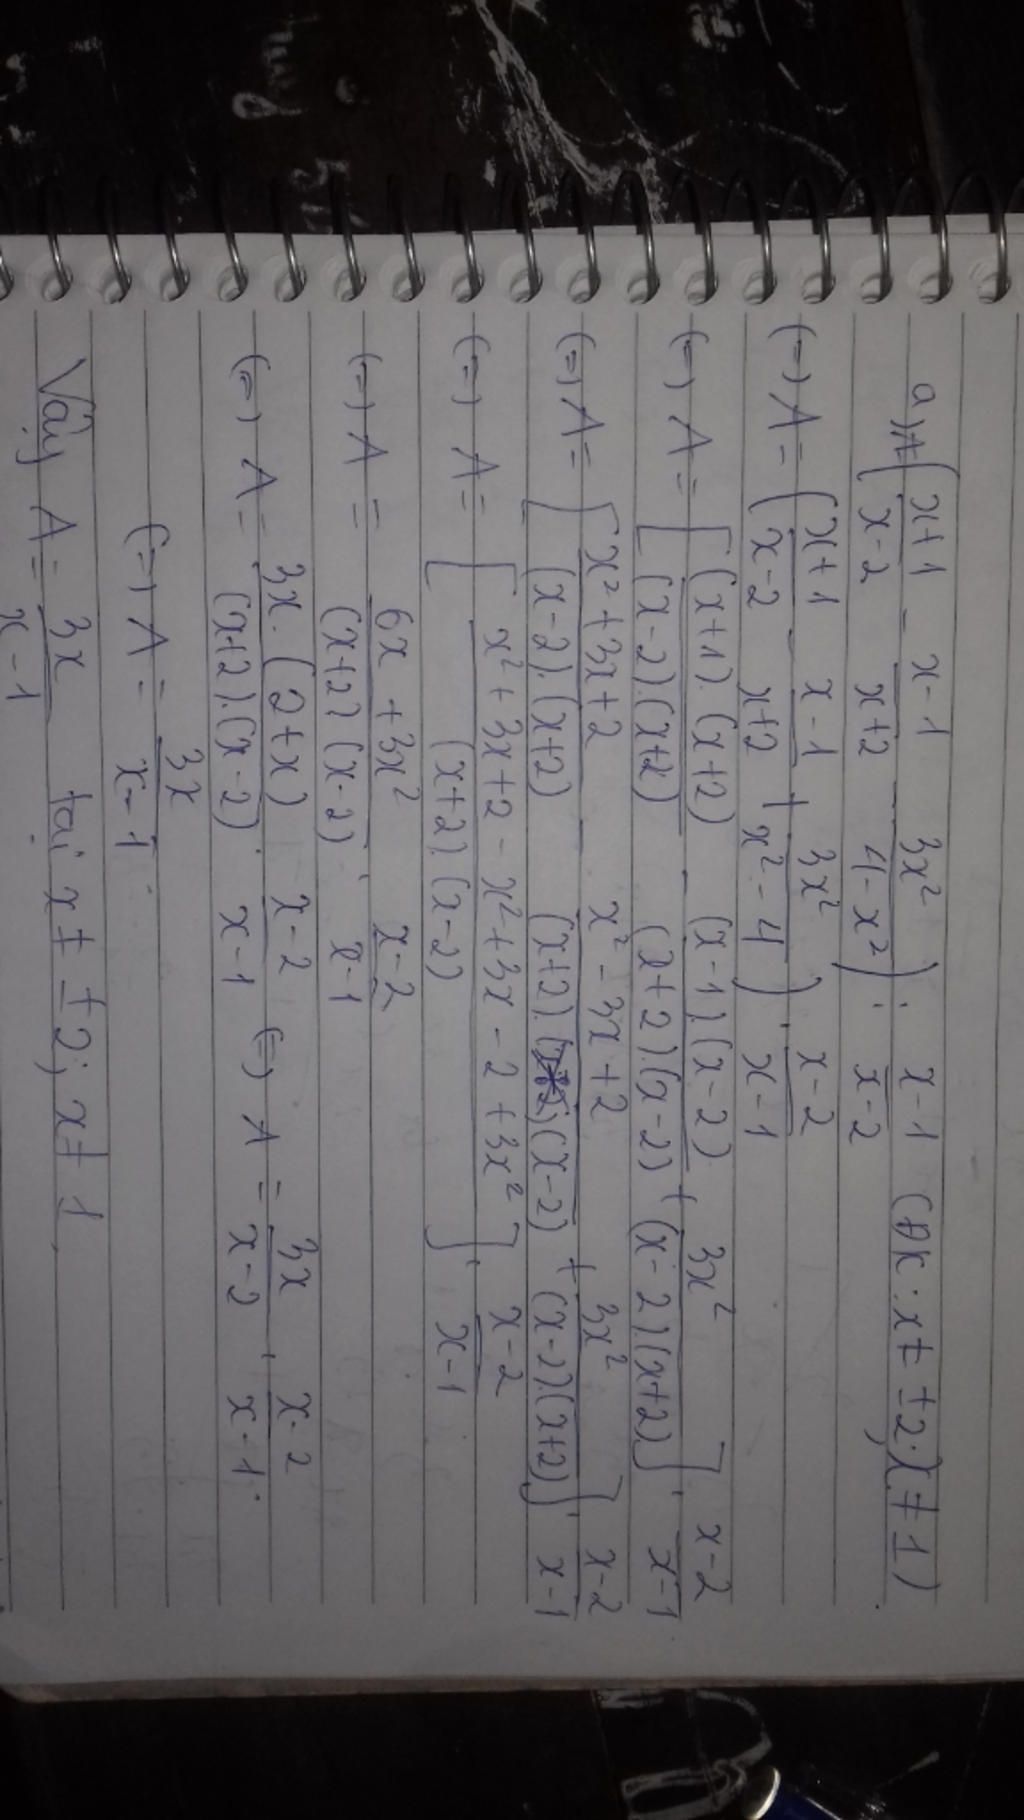 a) A = ( (x+1)/(x-2) - (x-1)/(x+2) - 3x²/(4-x²) ) : (x-1)/(x-2) (ĐK: x ≠ ±2; x ≠ 1)
(=) A = ( (x+1)/(x-2) - (x-1)/(x+2) + 3x²/(x²-4) ) . (x-2)/(x-1)
(=) A = [ (x+1).(x+2)/(x-2).(x+2) - (x-1).(x-2)/(x+2).(x-2) + 3x²/(x-2).(x+2) ] . (x-2)/(x-1)
(=) A = [ (x²+3x+2)/(x-2).(x+2) - (x²-3x+2)/(x+2).(x-2) + 3x²/(x-2).(x+2) ] . (x-2)/(x-1)
(=) A = [ (x²+3x+2 - x²+3x-2+3x²)/(x+2).(x-2) ] . (x-2)/(x-1)
(=) A = (6x+3x²)/(x+2)(x-2) . (x-2)/(x-1)
(=) A = 3x.(2+x)/(x+2).(x-2) . (x-2)/(x-1) (=) A = 3x/(x-2) . (x-2)/(x-1)
(=) A = 3x/(x-1)
Vậy A = 3x/(x-1) tại x ≠ ±2; x ≠ 1